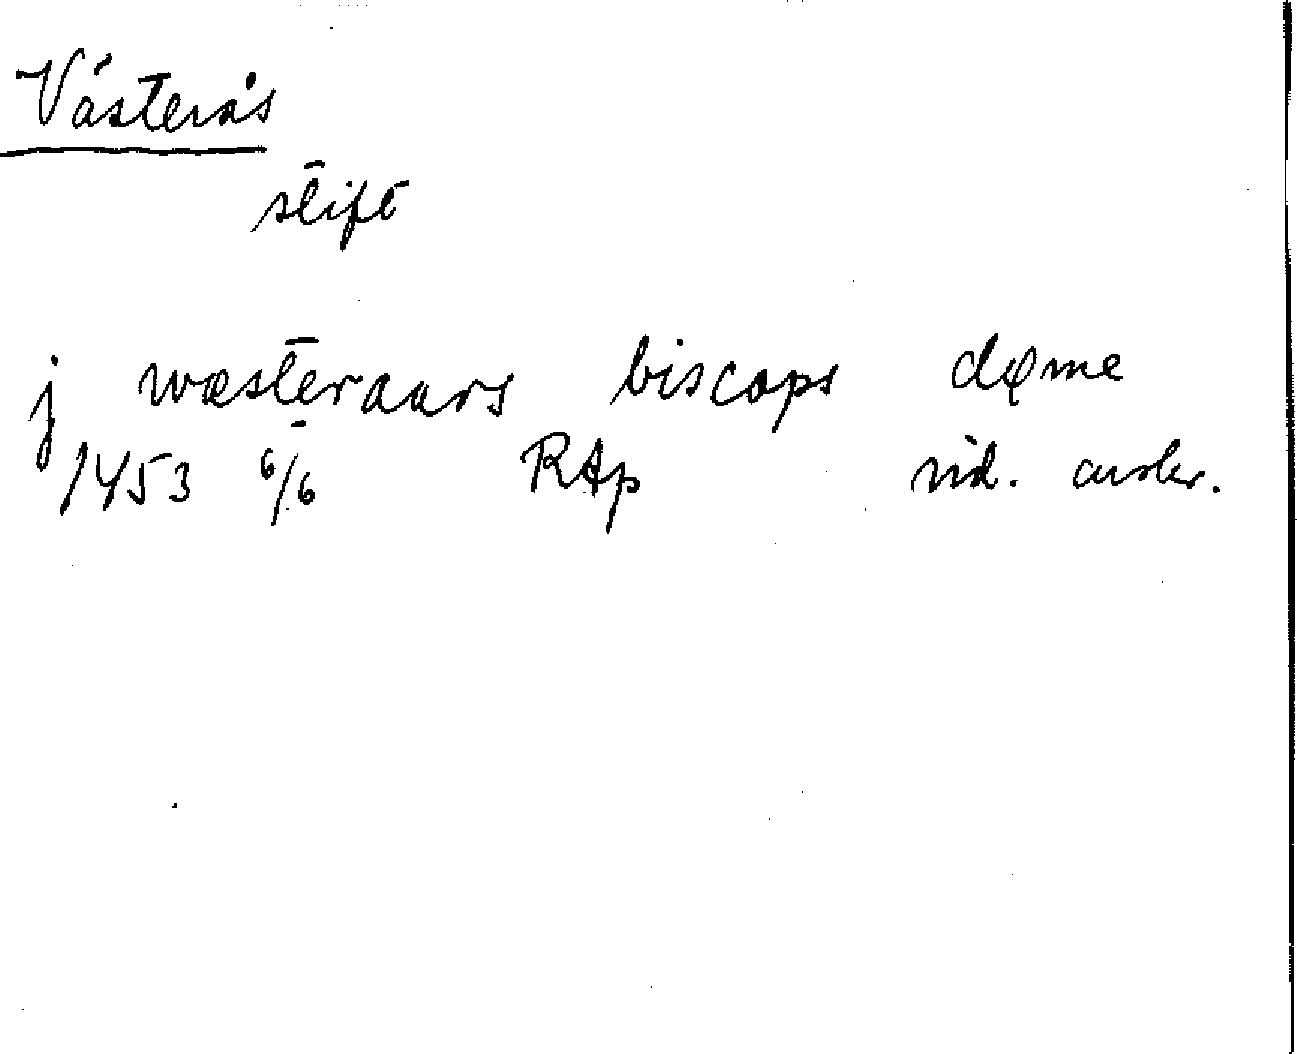 Västerås
stift
j wæsteraars biscops døme
1453 6/6 RAp vid. avskr.